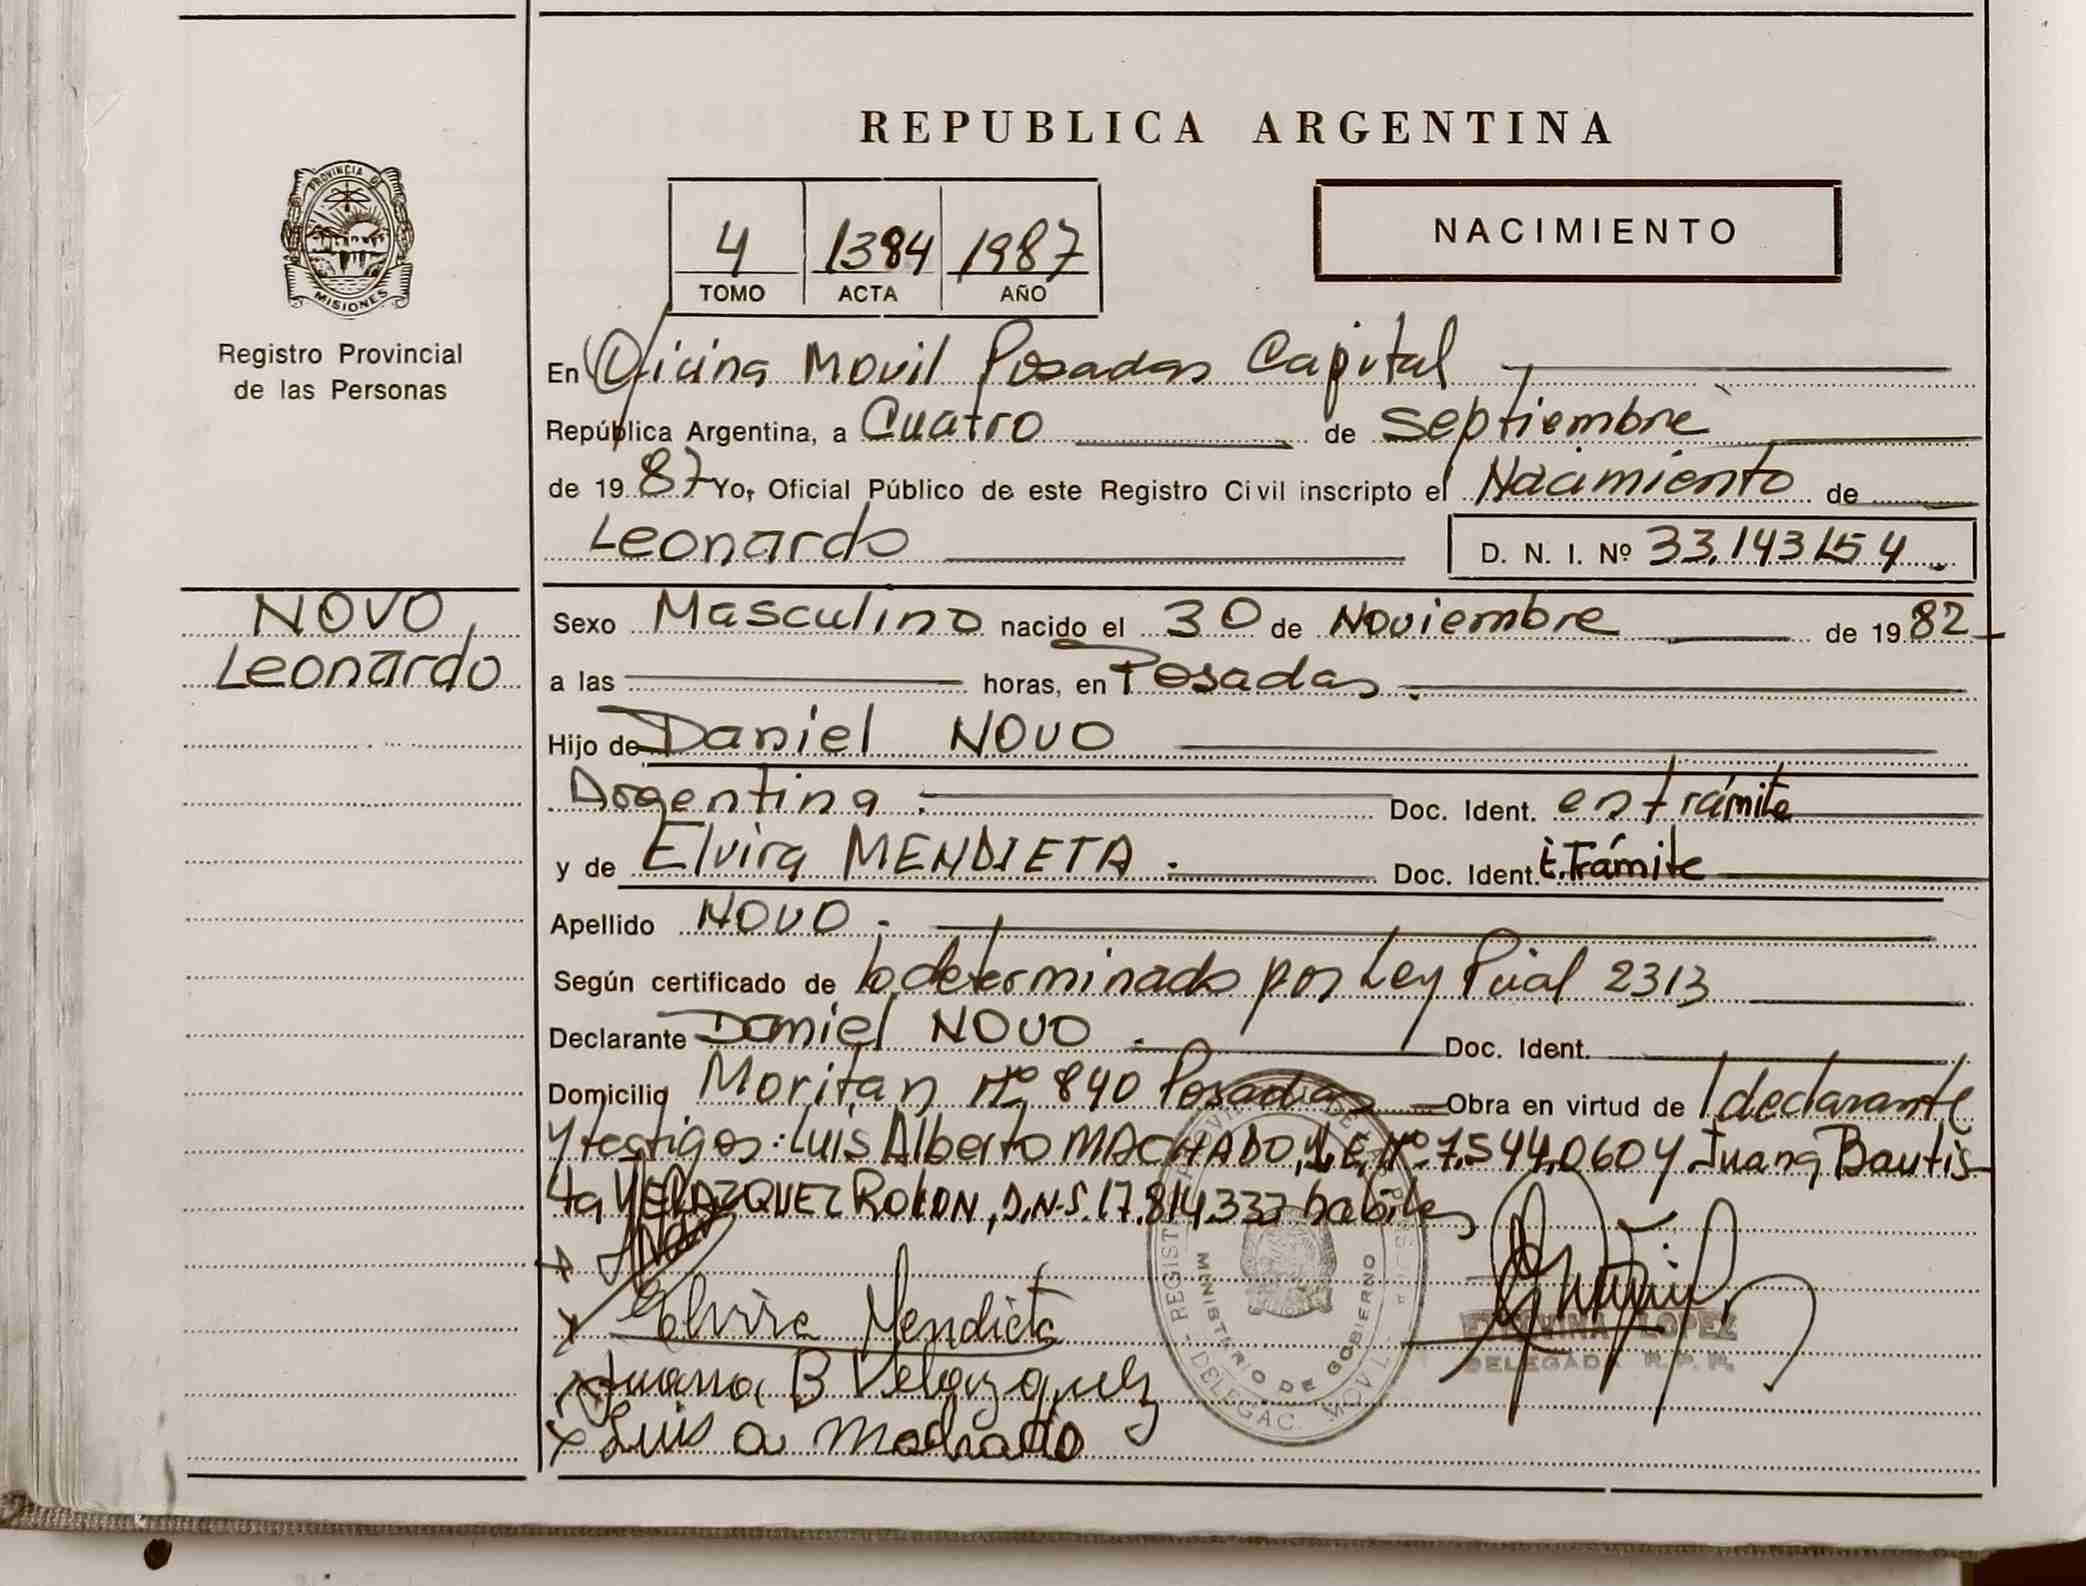 REPUBLICA ARGENTINA
PROVINCIA DE
MISIONES
Registro Provincial
de las Personas
NACIMIENTO
4 1384 1987
TOMO ACTA AÑO
En Oficina Movil Posadas Capital
República Argentina, a Cuatro de septiembre
de 1987 Yo, Oficial Público de este Registro Civil inscripto el Nacimiento de
Leonardo D. N. I. Nº 33.143154
NOVO,
Leonardo
Sexo Masculino nacido el 30 de Noviembre de 1982
a las horas, en Posadas.
Hijo de Daniel NOVO
Argentina. Doc. Ident. en trámite
y de Elvira MENDIETA. Doc. Ident. E. Trámite
Apellido NOVO.
Según certificado de lo determinado por Ley Pvial 2313
Declarante Daniel NOVO. Doc. Ident.
Domicilio Moritan Nº 840 Posadas Obra en virtud de declarante
y testigos: Luis Alberto MACHADO, L.E. Nº 7.544.060 y Juana Bautis
ta VELAZQUEZ ROLON, D.N.I. 17.814.337 habiles
x
x Elvira Mendieta
x Juana B Velazquez
x Luis a Machado
MINISTERIO DE GOBIERNO
DELEGAC. MOVIL
LOPEZ
DELEGADA R. P. P.